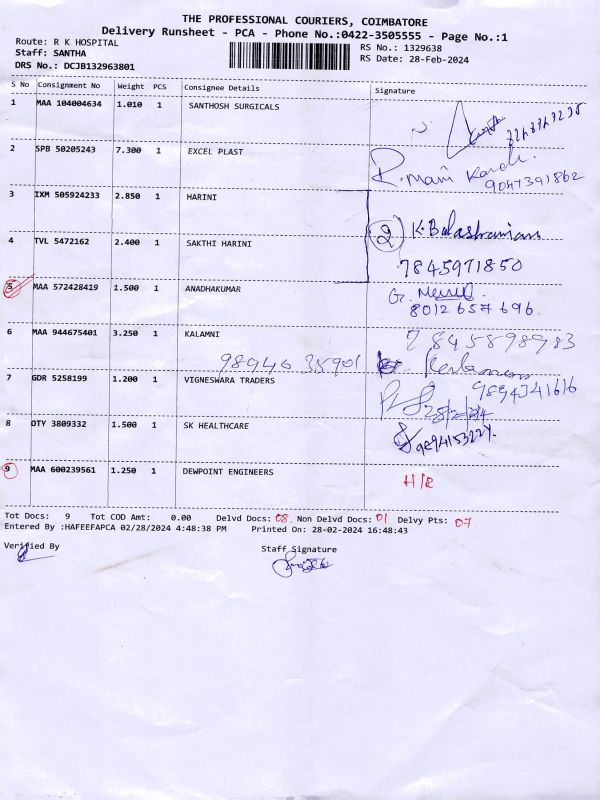 THE PROFESSIONAL COURIERS, COIMBATORE
Delivery Runsheet - PCA - Phone No.:0422-3505555 - Page No.:1
Route: R K HOSPITAL
Staff: SANTHA
DRS No.: DCJB132963801
RS No.: 1329638
RS Date: 28-Feb-2024
S No Consignment No Weight PCS Consignee Details Signature
1 MAA 104004634 1.010 1 SANTHOSH SURGICALS
2 SPB 50205243 7.300 1 EXCEL PLAST R. Mani
9047391862
3 IXM 505924233 2.850 1 HARINI
2
4 TVL 5472162 2.400 1 SAKTHI HARINI
7845971850
5 MAA 572428419 1.500 1 ANADHAKUMAR G.
8012 657 696.
6 MAA 944675401 3.250 1 KALAMNI 7845898983
98946 35901
7 GDR 5258199 1.200 1 VIGNESWARA TRADERS 9894341616
28/2/24
8 OTY 3809332 1.500 1 SK HEALTHCARE
9 MAA 600239561 1.250 1 DEWPOINT ENGINEERS H/R
Tot Docs: 9 Tot COD Amt: 0.00 Delvd Docs: 08. Non Delvd Docs: 01 Delvy Pts: 07.
Entered By :HAFEEFAPCA 02/28/2024 4:48:38 PM Printed On: 28-02-2024 16:48:43
Verified By
Staff Signature